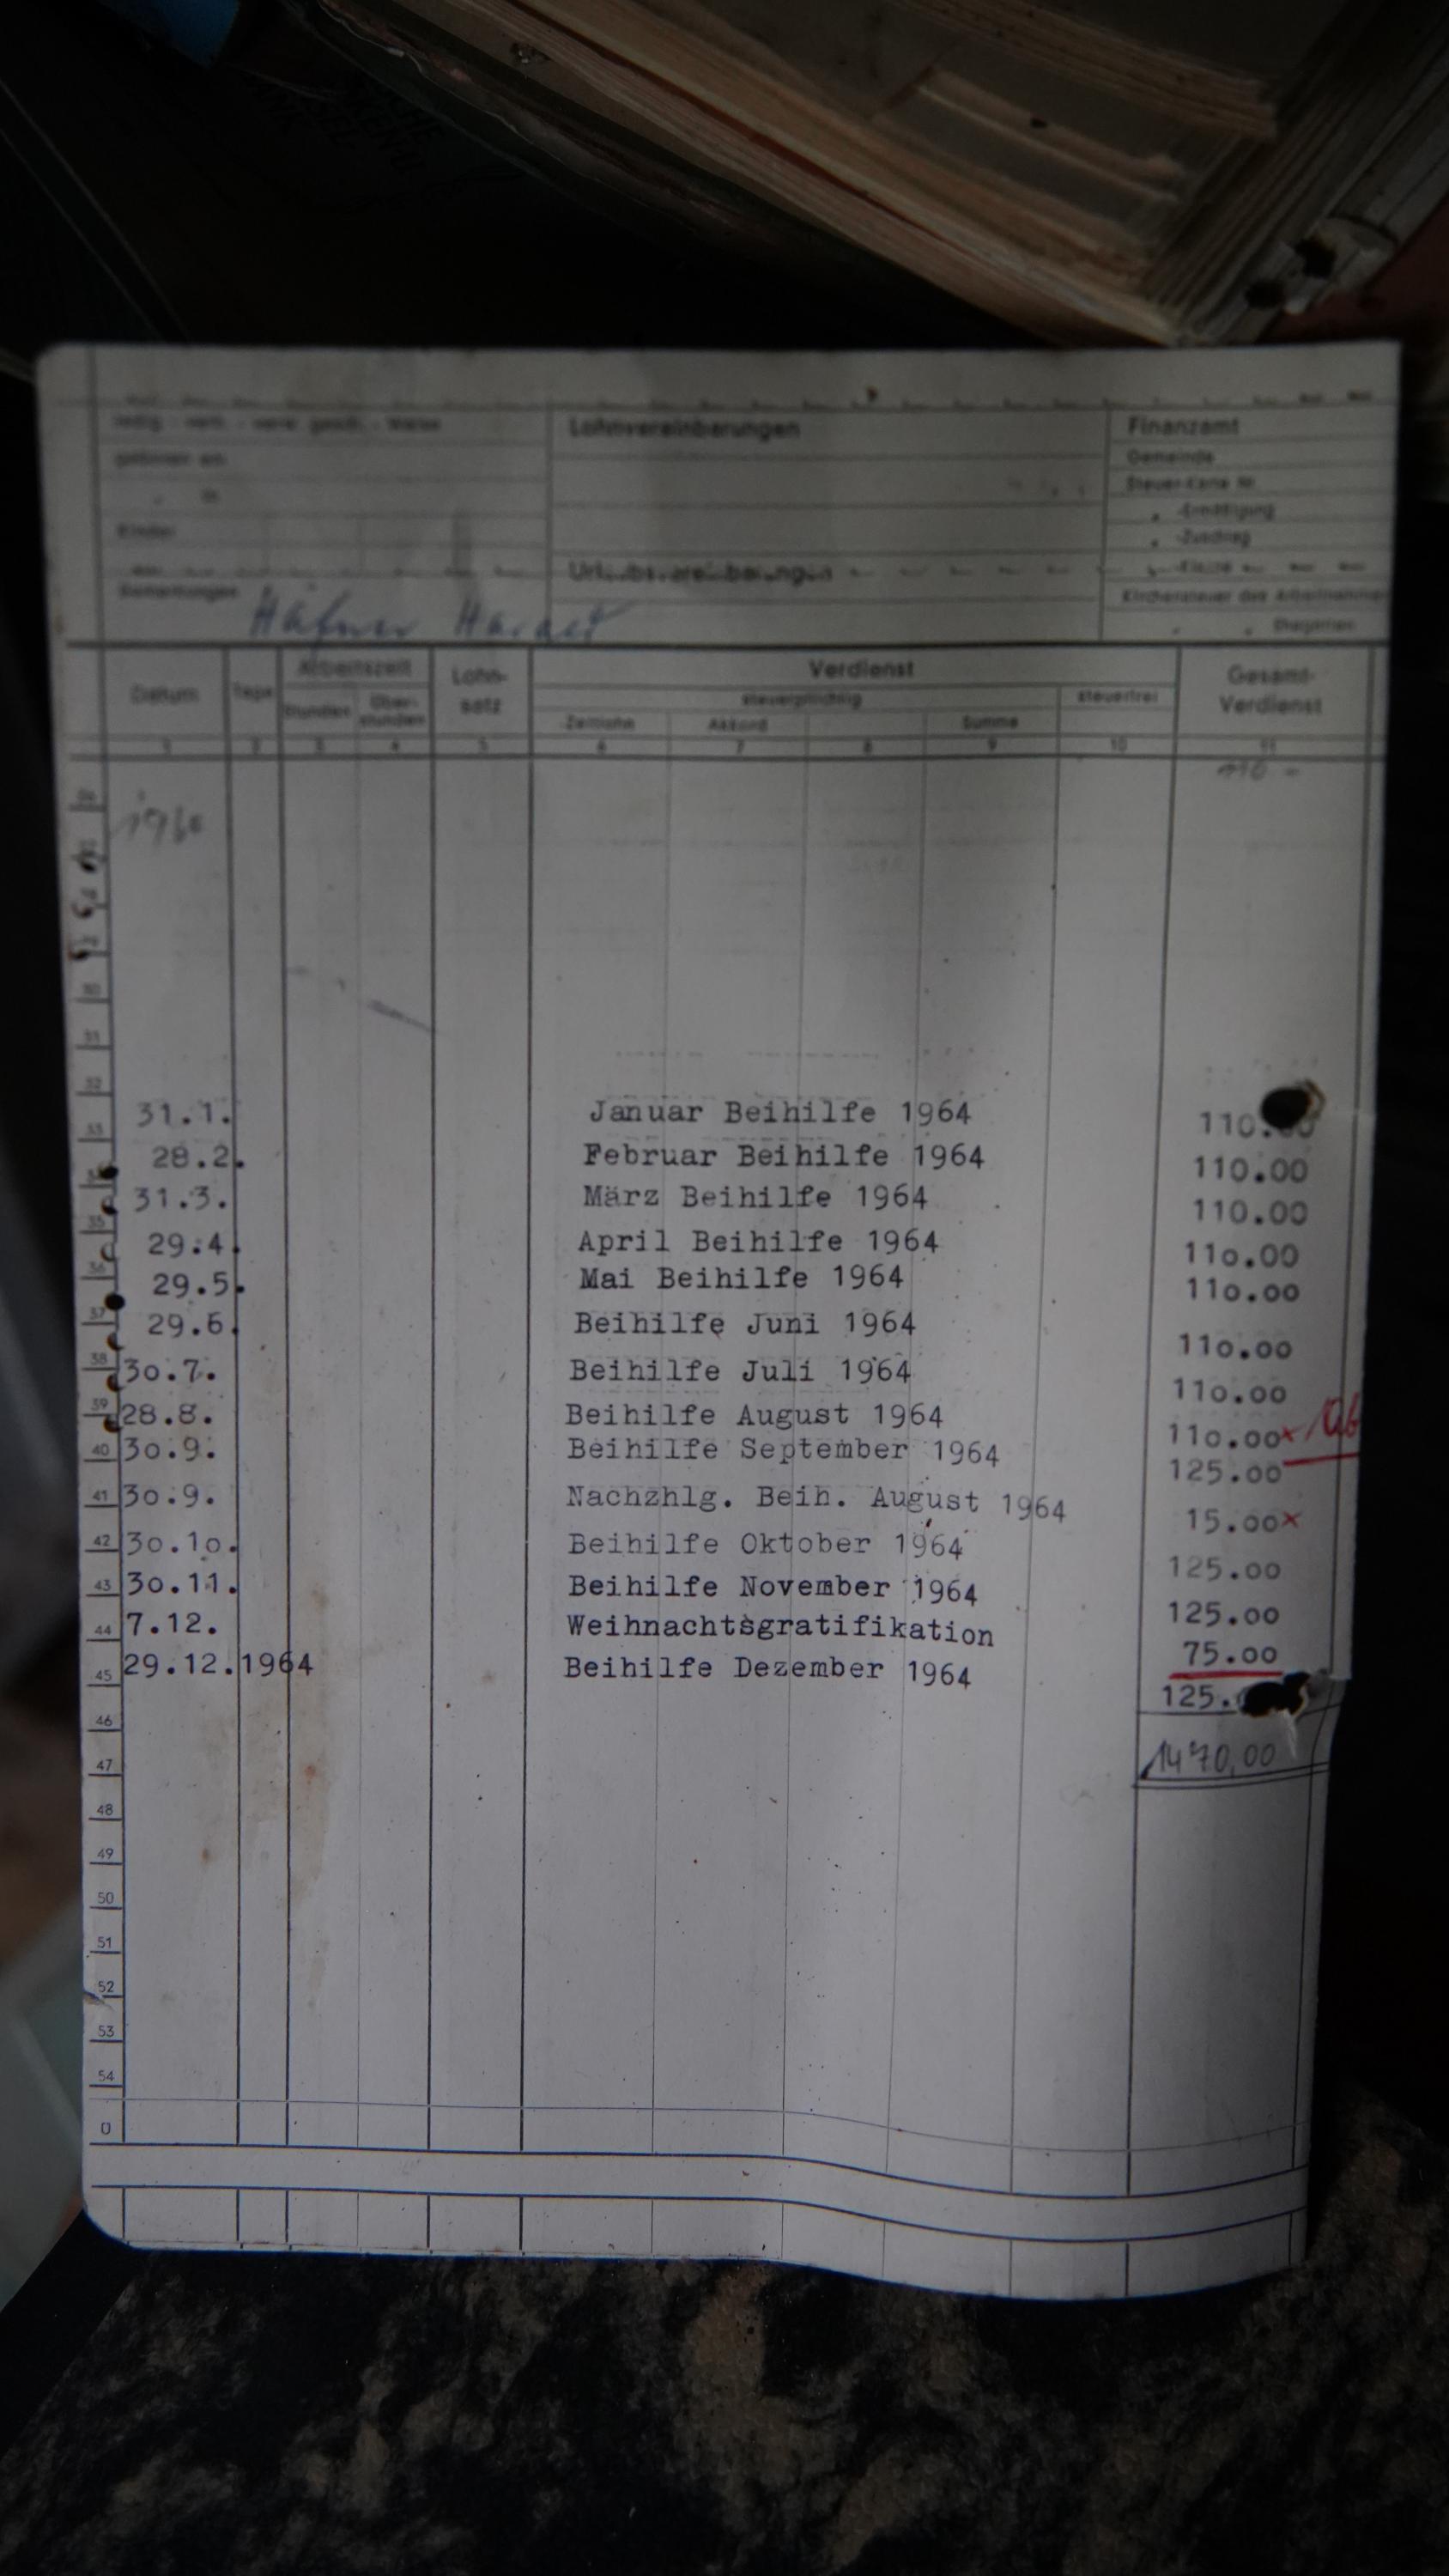 ledig - verh. - verw. gesch. - Waise
Lohnvereinbarungen
Finanzamt
geboren am
Gemeinde
in
Steuer-Karte Nr.
" -Ermäßigung
Kinder
" -Zuschlag
Urlaubsvereinbarungen
" -Klasse
Bemerkungen Häfner
Kirchensteuer des Arbeitnehmers
" " Ehegatten
Datum Tage Arbeitszeit Lohn- Verdienst Gesamt-
Stunden Über- satz steuerpflichtig steuerfrei Verdienst
stunden Zeitlohn Akkord Summe
1 2 3 4 5 6 7 8 9 10 11
110 -
30
31
32
31.1. Januar Beihilfe 1964 110.00
33
28.2. Februar Beihilfe 1964 110.00
31.3. März Beihilfe 1964 110.00
35
29.4. April Beihilfe 1964 110.00
36
29.5. Mai Beihilfe 1964 110.00
37
29.6. Beihilfe Juni 1964 110.00
38
30.7. Beihilfe Juli 1964 110.00
39
28.8. Beihilfe August 1964 110.00x
40 30.9. Beihilfe September 1964 125.00
41 30.9. Nachzhlg. Beih. August 1964 15.00x
42 30.10. Beihilfe Oktober 1964 125.00
43 30.11. Beihilfe November 1964 125.00
44 7.12. Weihnachtsgratifikation 75.00
45 29.12.1964 Beihilfe Dezember 1964 125.
46
47 1470,00
48
49
50
51
52
53
54
0